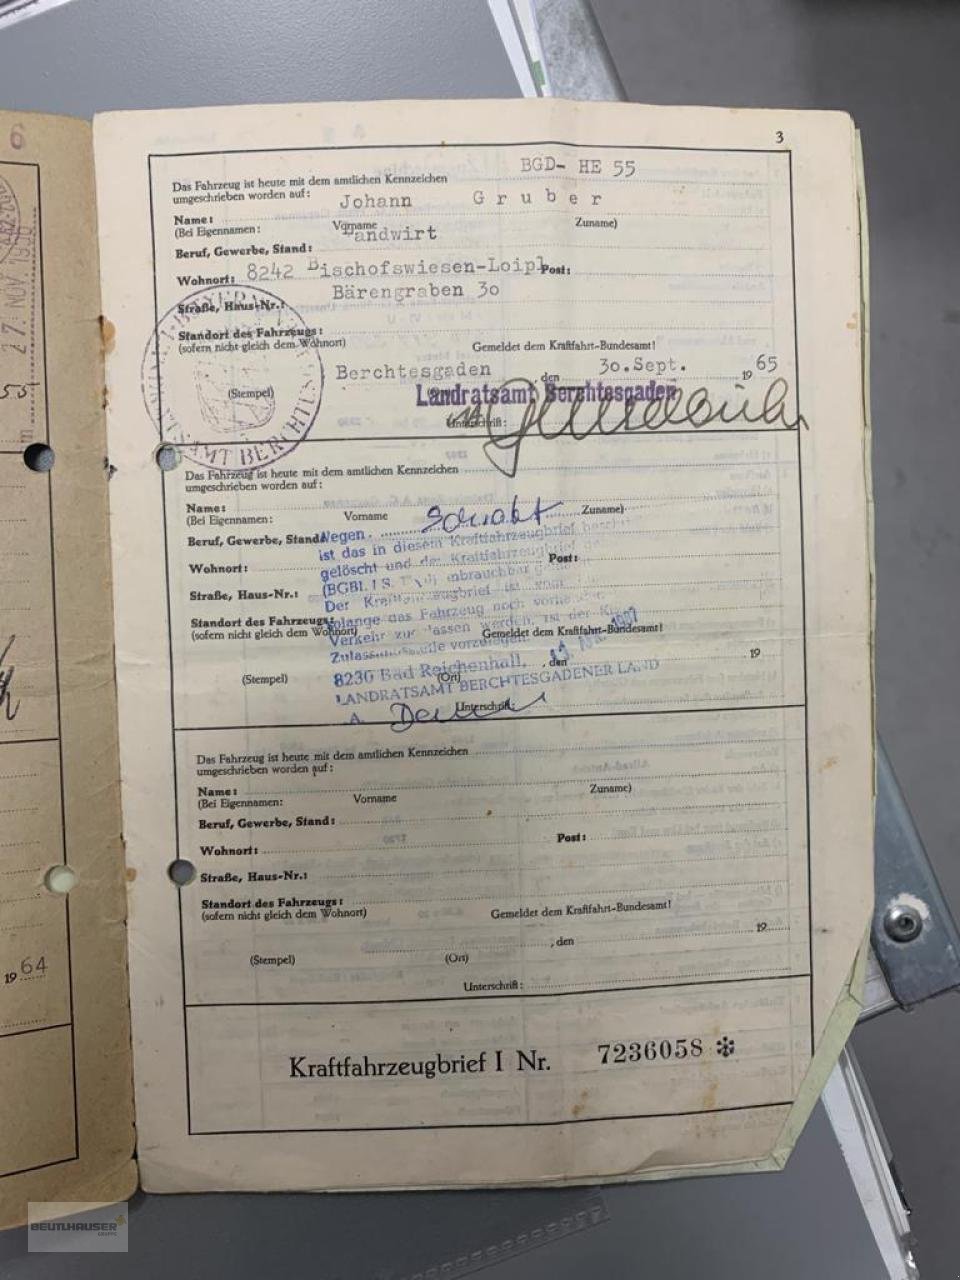 6
27. NOV. 19
55
19 64
3
Das Fahrzeug ist heute mit dem amtlichen Kennzeichen BGD- HE 55
umgeschrieben worden auf:
Johann Gruber
Name:
(Bei Eigennamen: Vorname Zuname)
Landwirt
Beruf, Gewerbe, Stand:
Wohnort: 8242 Bischofswiesen-Loipl Post:
Bärengraben 30
Straße, Haus-Nr.:
Standort des Fahrzeugs:
(sofern nicht gleich dem Wohnort) Gemeldet dem Kraftfahrt-Bundesamt!
Berchtesgaden, den 30.Sept. 19 65
(Stempel) Landratsamt Berchtesgaden
Unterschrift:
Das Fahrzeug ist heute mit dem amtlichen Kennzeichen
umgeschrieben worden auf:
Name:
(Bei Eigennamen: Vorname Zuname)
Wegen
Beruf, Gewerbe, Stand:
ist das in diesem Kraftfahrzeugbrief
Wohnort: Post:
gelöscht und der Kraftfahrzeugbrief
(BGBl. I S. unbrauchbar
Straße, Haus-Nr.:
Der Kraftfahrzeugbrief ist
Standort des Fahrzeugs:
solange das Fahrzeug noch
(sofern nicht gleich dem Wohnort) Gemeldet dem Kraftfahrt-Bundesamt!
Verkehr werden, ist der
Zulassungsstelle vorzulegen.
8230 Bad Reichenhall, , den 19
(Stempel) (Ort)
LANDRATSAMT BERCHTESGADENER LAND
Unterschrift:
Das Fahrzeug ist heute mit dem amtlichen Kennzeichen
umgeschrieben worden auf:
Name:
(Bei Eigennamen: Vorname Zuname)
Beruf, Gewerbe, Stand:
Wohnort: Post:
Straße, Haus-Nr.:
Standort des Fahrzeugs:
(sofern nicht gleich dem Wohnort) Gemeldet dem Kraftfahrt-Bundesamt!
, den 19
(Stempel) (Ort)
Unterschrift:
Kraftfahrzeugbrief I Nr. 7236058 ✻
BEUTLHAUSER
GRUPPE